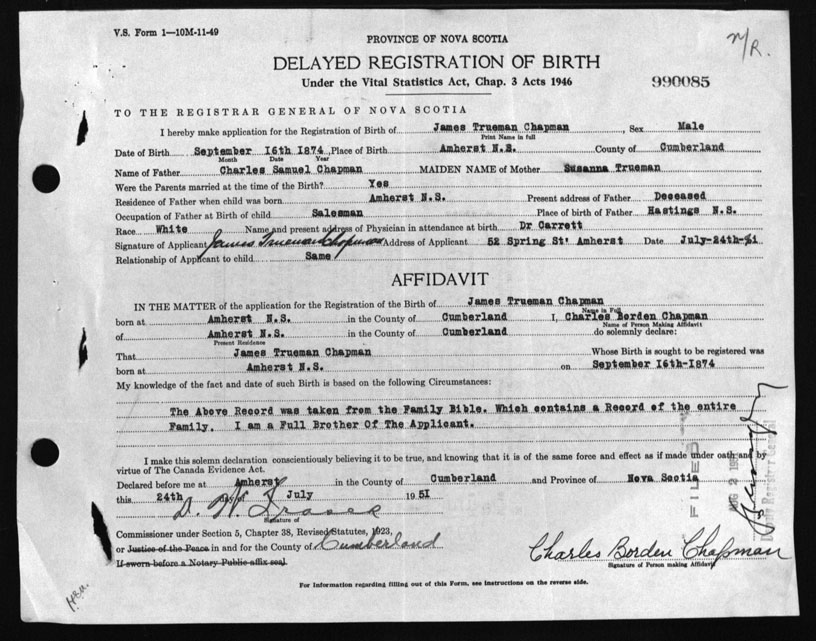 V.S. Form 1—10M-11-49
PROVINCE OF NOVA SCOTIA
DELAYED REGISTRATION OF BIRTH
Under the Vital Statistics Act, Chap. 3 Acts 1946
990085
TO THE REGISTRAR GENERAL OF NOVA SCOTIA
I hereby make application for the Registration of Birth of James Trueman Chapman, Sex Male
Print Name in full
Date of Birth September 16th 1874, Place of Birth Amherst N.S. County of Cumberland
Month Date Year
Name of Father Charles Samuel Chapman MAIDEN NAME of Mother Susanna Trueman
Were the Parents married at the time of the Birth? Yes
Residence of Father when child was born Amherst N.S. Present address of Father Deceased
Occupation of Father at Birth of child Salesman Place of birth of Father Hastings N.S.
Race White Name and present address of Physician in attendance at birth Dr Carrett
Signature of Applicant James Trueman Chapman Address of Applicant 52 Spring St' Amherst Date July-24th-51
Relationship of Applicant to child Same
AFFIDAVIT
IN THE MATTER of the application for the Registration of the Birth of James Trueman Chapman
Name in Full
born at Amherst N.S. in the County of Cumberland I, Charles Borden Chapman
Name of Person Making Affidavit
of Amherst N.S. in the County of Cumberland do solemnly declare:
Present Residence
That James Trueman Chapman Whose Birth is sought to be registered was
born at Amherst N.S. on September 16th-1874
My knowledge of the fact and date of such Birth is based on the following Circumstances:
The Above Record was taken from the Family Bible. Which contains a Record of the entire
Family. I am a Full Brother Of The Applicant.
I make this solemn declaration conscientiously believing it to be true, and knowing that it is of the same force and effect as if made under oath and by
virtue of The Canada Evidence Act.
Declared before me at Amherst in the County of Cumberland and Province of Nova Scotia
this 24th day of July 1951
D. W. Fraser
Signature of
Commissioner under Section 5, Chapter 38, Revised Statutes, 1923,
or Justice of the Peace in and for the County of Cumberland
If sworn before a Notary Public affix seal.
Charles Borden Chapman
Signature of Person making Affidavit
For Information regarding filling out of this Form, see instructions on the reverse side.
FILED